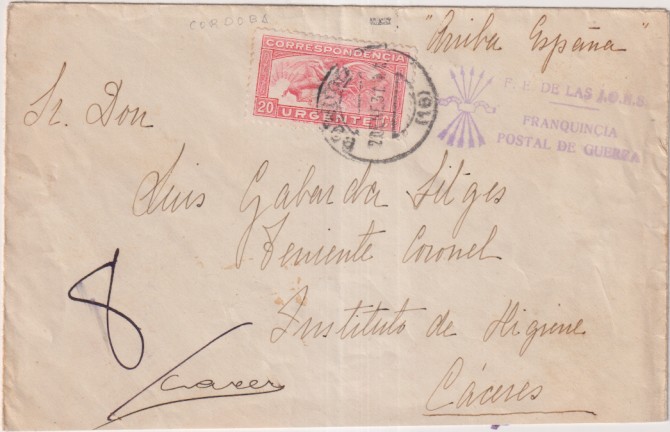 CORDOBA
"Arriba España"
CORRESPONDENCIA
20
URGENTE
(16)
F. E. DE LAS J.O.N.S.
FRANQUINCIA
POSTAL DE GUERRA
Sr. Don
Luis Gabarda Sitges
Teniente Coronel
Instituto de Higiene
Cáceres
8